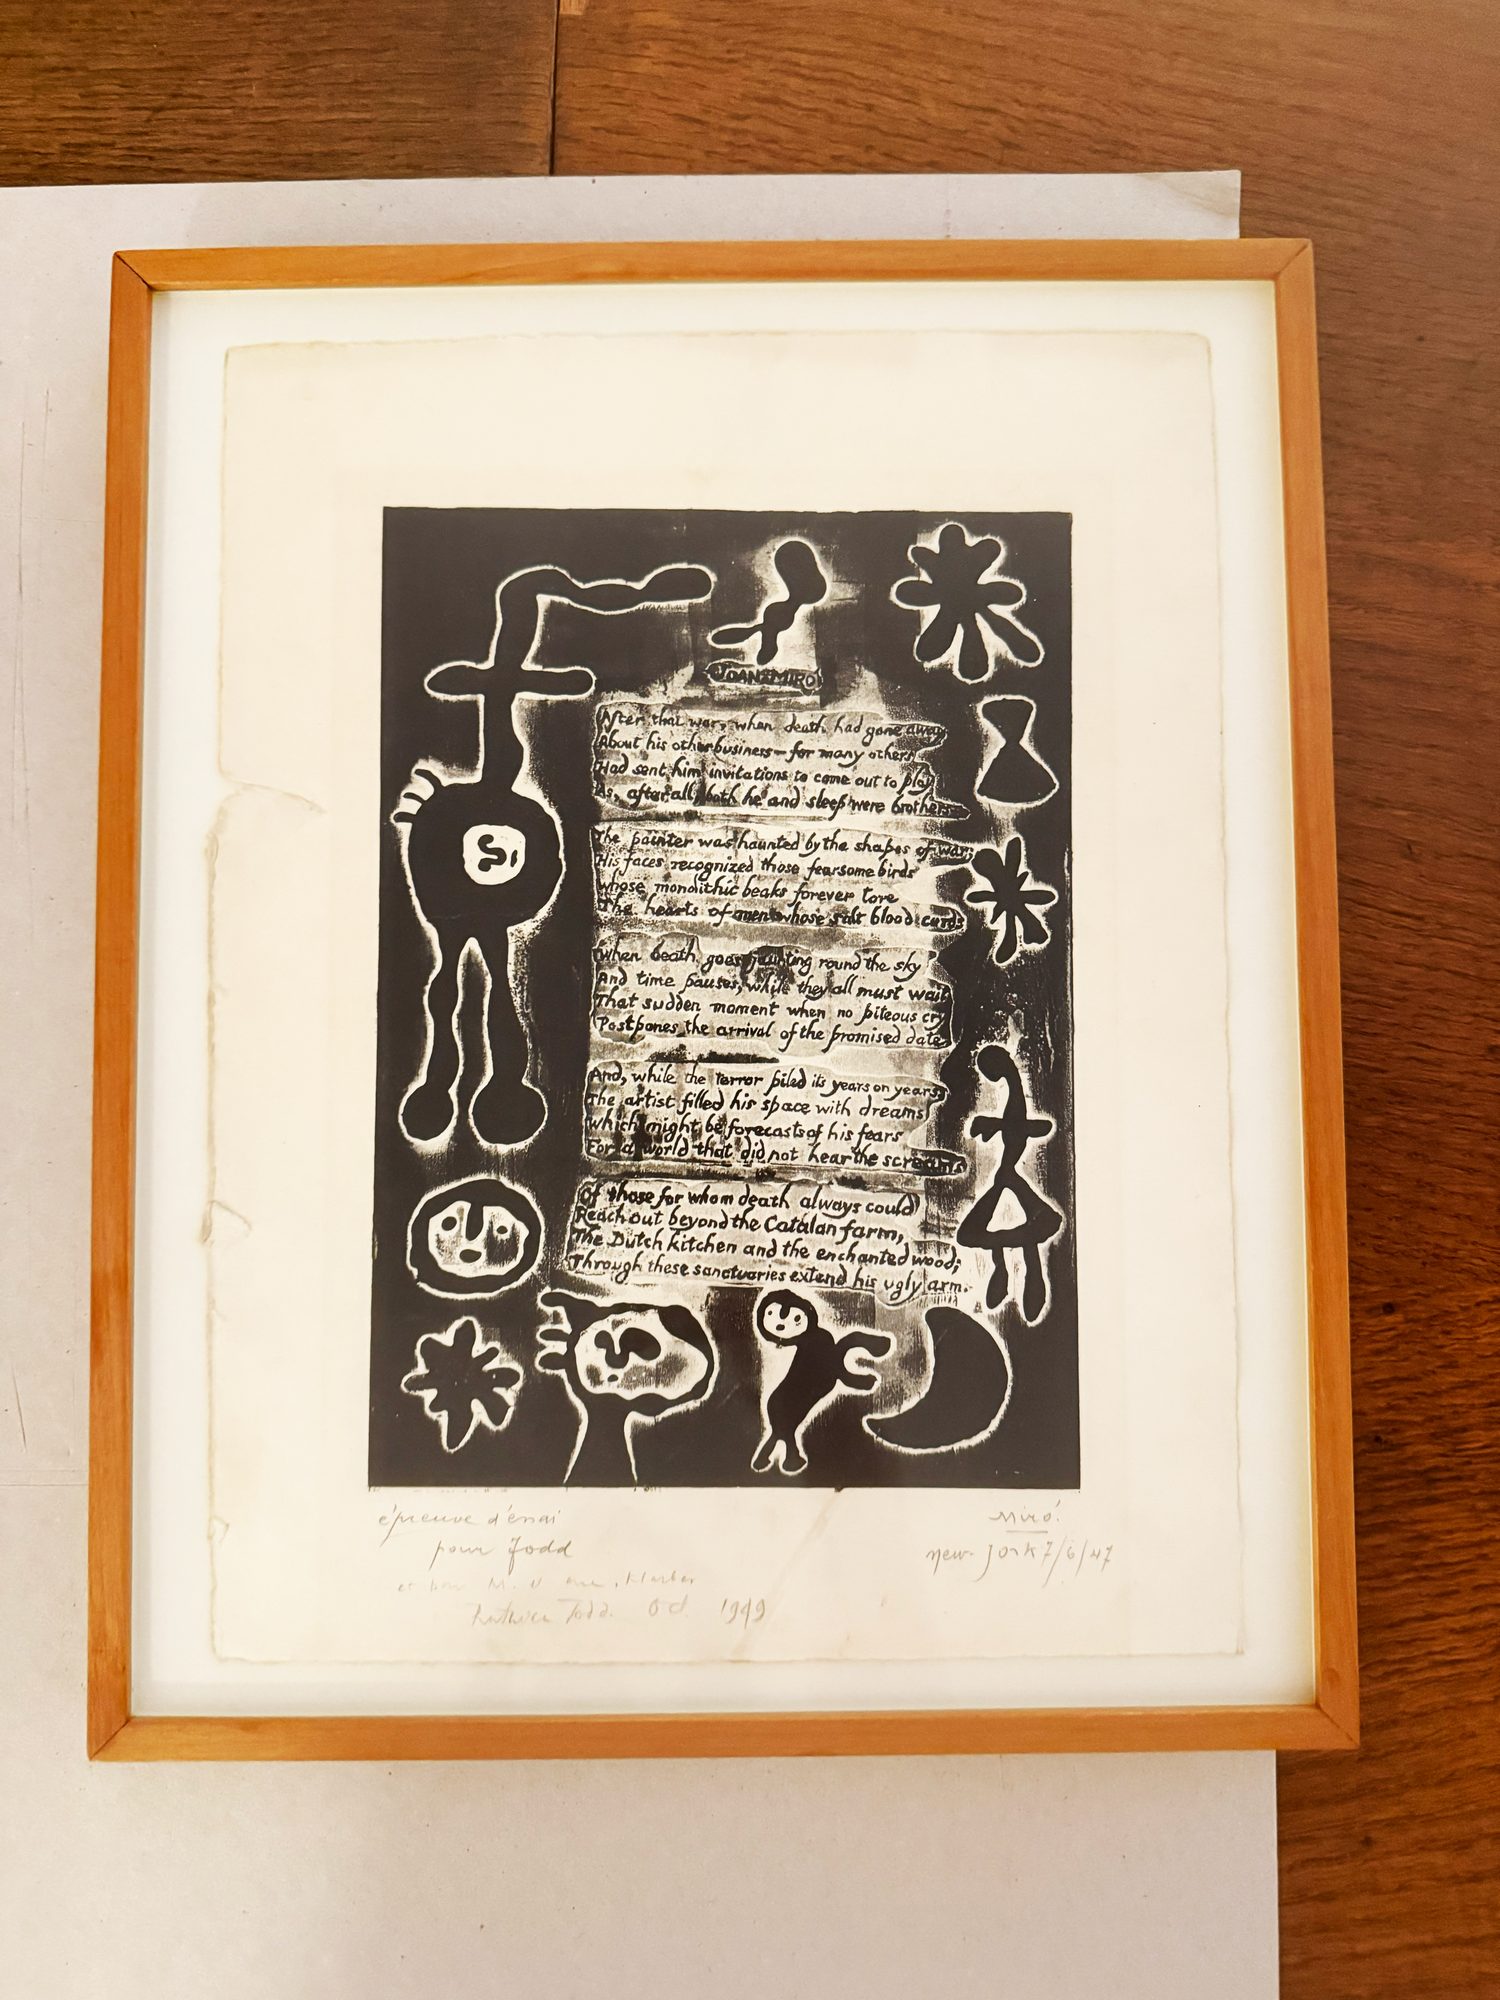 JOAN MIRÓ
After that war, when death had gone away
About his other business – for many others
Had sent him invitations to come out to play
As, after all, both he and sleep were brothers
The painter was haunted by the shapes of war;
His faces recognized those fearsome birds
whose monolithic beaks forever tore
The hearts of men whose salt blood curds
When death goes hunting round the sky
And time pauses, while they all must wait
That sudden moment when no piteous cry
Postpones the arrival of the promised date.
And, while the terror piled its years on years,
The artist filled his space with dreams
which might be forecasts of his fears
For a world that did not hear the screams
Of those for whom death always could
Reach out beyond the Catalan farm,
The Dutch kitchen and the enchanted wood;
Through these sanctuaries extend his ugly arm.
épreuve d'éssai
pour Todd
et pour M.
Ruthven Todd. Oct. 1949
Miró.
New-York 7/6/47